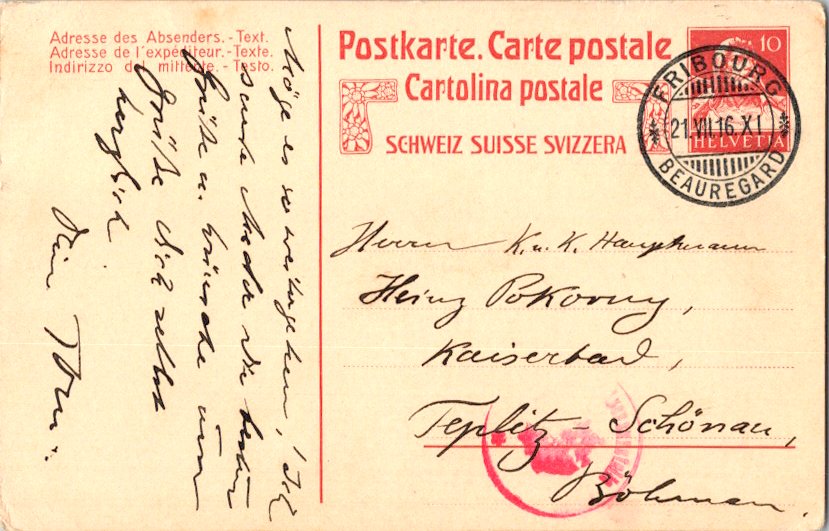 Adresse des Absenders.-Text.
Adresse de l'expéditeur.-Texte.
Indirizzo del mittente.-Testo.
Postkarte. Carte postale
Cartolina postale
SCHWEIZ SUISSE SVIZZERA
10
HELVETIA
FRIBOURG
21.VII.16.XI
BEAUREGARD
Herrn K. u. K. Hauptmann
Heinz Pokorny,
Kaiserbad,
Teplitz-Schönau,
Böhmen.
Möge es so weitergehen! Ich
sende wieder die besten
Grüße u. Wünsche und
Grüße dich selbst
herzlich
Dein